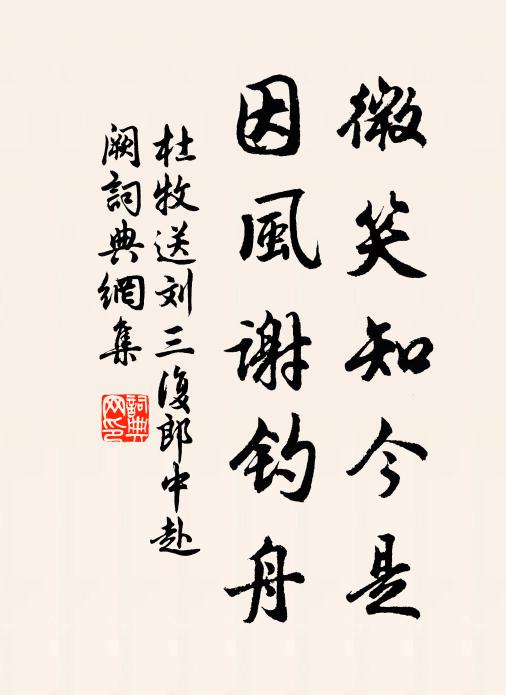 微笑知今是
因風谢钓舟
杜牧送刘三復郎中赴
阙詞典網集
詞典网印